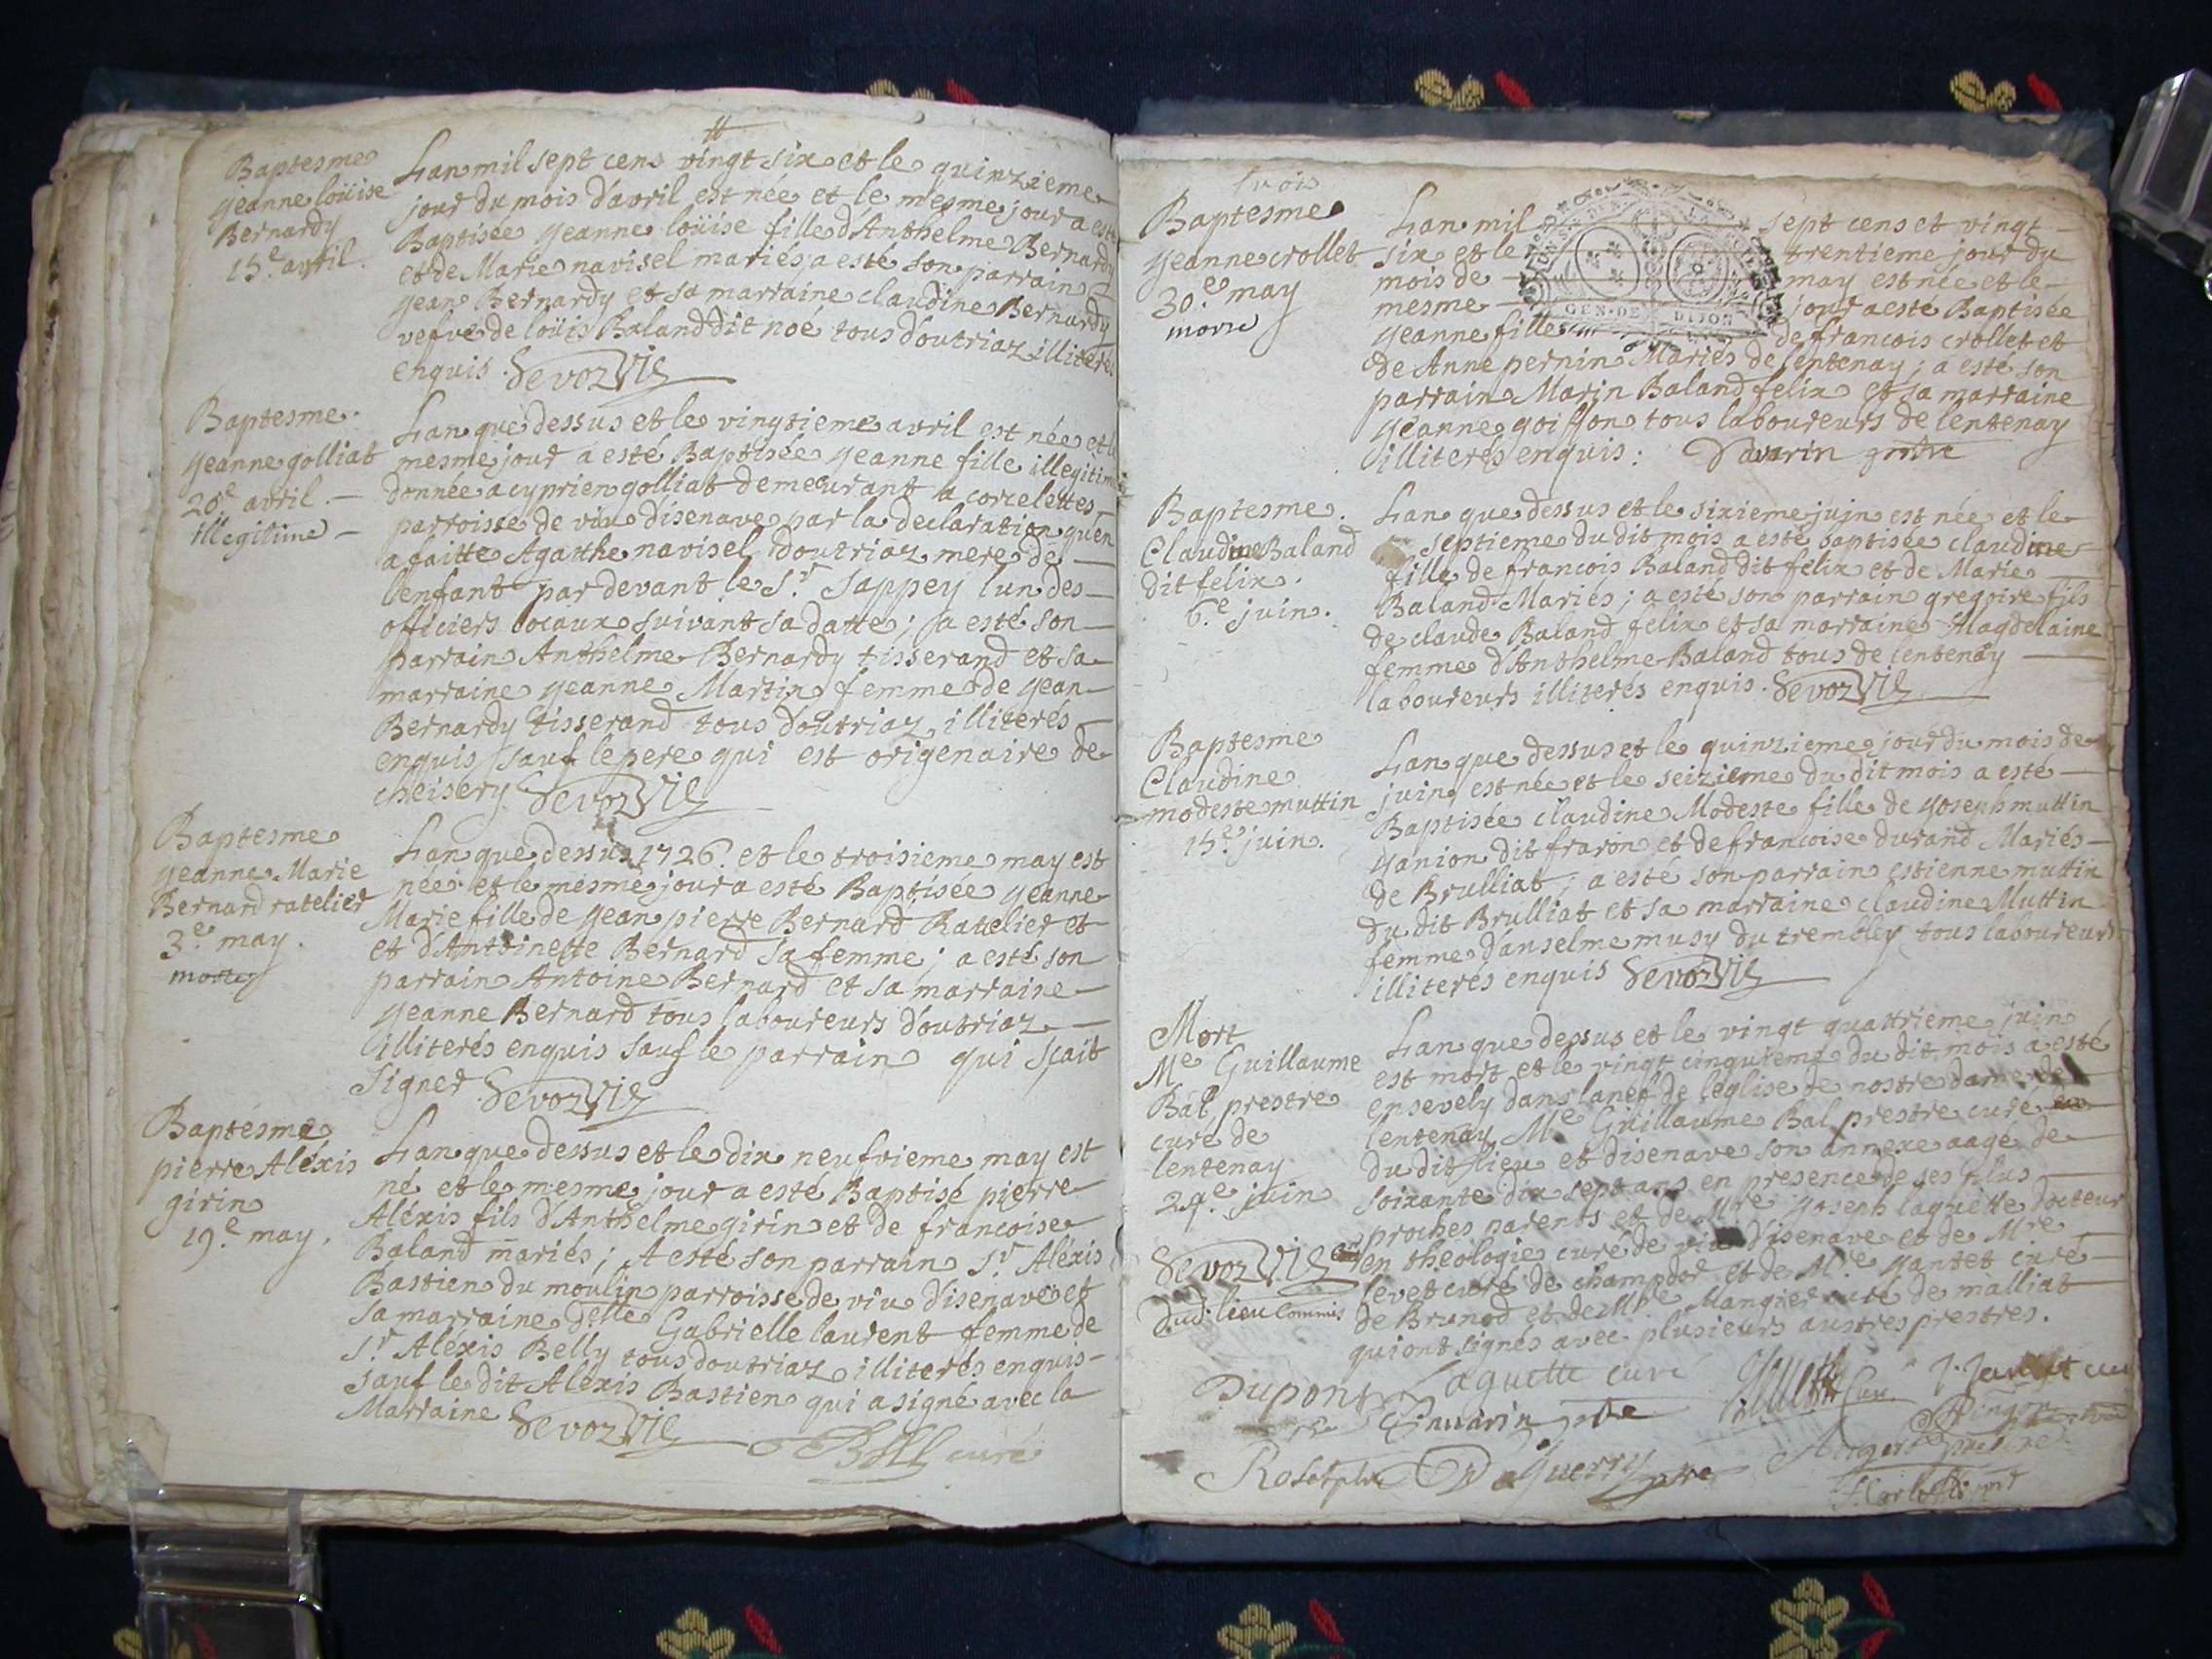 Baptesme
yeanne loüise
Bernardy
15.e avril.
Lan mil sept cens vingt six et le quinzieme
jour du mois davril est née et le mesme jour a esté
Baptisée yeanne loüise fille d'Anthelme Bernardy
et de Marie navisel mariés; a esté son parrain
yean Bernardy et sa marraine claudine Bernardy
vefve de loüis Baland dit noé tous doutriaz illiterés
enquis. Devozvie
Baptesme.
yeanne golliat
20.e avril.
illegitime
Lan que dessus et le vingtieme avril est née et le
mesme jour a esté Baptisée yeanne fille illegitime
donnée a cyprien golliat demeurant a corcelettes
parroisse de viu disenave par la declaration quen
a faitte Agatthe navisel doutriaz mere de
lenfant par devant le Sr. Sappey lun des
officiers locaux suivant sa datte; a esté son
parrain Anthelme Bernardy tisserand et sa
marraine yeanne Martin femme de yean
Bernardy tisserand tous doutriaz illiterés
enquis sauf le pere qui est origenaire de
cheisery Devozvie
Baptesme
yeanne Marie
Bernard ratelier
3.e may.
Lan que dessus 1726. et le troisieme may est
née et le mesme jour a esté Baptisée yeanne
Marie fille de yean pierre Bernard Ratelier et
et d'Antoinette Bernard sa femme; a esté son
parrain Antoine Bernard et sa marraine
yeanne Bernard tous laboureurs doutriaz
illiterés enquis sauf le parrain qui sçait
signer Devozvie
Baptesme
pierre Aléxis
girin
19.e may.
Lan que dessus et le dix neufvieme may est
né et le mesme jour a esté Baptisé pierre
Aléxis fils d'Anthelme girin et de francoise
Baland mariés; A esté son parrain Sr. Aléxis
Bastien du moulin parroisse de viu disenave et
sa marraine delle Gabrielle laurent femme de
Sr. Aléxis Belly tous doutriaz illiterés enquis
sauf le dit Aléxis Bastien qui a signé avec la
Marraine Devozvie
curé
trois
Baptesme
yeanne crollet
30.e may
morte
Lan mil sept cens et vingt
six et le trentieme jour du
mois de may est née et le
mesme jour a esté Baptisée
yeanne fille de francois crollet et
GEN·DE DIJON
de Anne pernin Mariés de lentenay; a esté son
parrain Marin Baland felix et sa marraine
yeanne goiffon tous laboureurs de lentenay
illiterés enquis:
Baptesme.
Claudine Baland
dit felix.
6.e juin.
Lan que dessus et le sixieme juin est née et le
septieme du dit mois a esté baptisée claudine
fille de francois Baland dit felix et de Marie
Baland Mariés; a esté son parrain gregoire fils
de claude Baland felix et sa marraine Magdelaine
femme d'Anthelme Baland tous de lentenay
laboureurs illiterés enquis. Devozvie
Baptesme
Claudine
modeste muttin
15.e juin.
Lan que dessus et le quinzieme jour du mois de
juin est née et le seizieme du dit mois a esté
Baptisée claudine Modeste fille de yoseph muttin
yanion dit fraron et de francoise durand Mariés
de Brulliat; a esté son parrain estienne muttin
du dit Brulliat et sa marraine claudine Muttin
femme d'anselme musy du trembley tous laboureurs
illiterés enquis Devozvie
Mort
Me Guillaume
Bal prestre
curé de
lentenay
24.e juin
Lan que dessus et le vingt quattrieme juin
est mort et le vingt cinquieme du dit mois a esté
ensevely dans la nef de leglise de nostre dame de
lentenay Me Guillaume Bal prestre curé
du dit lieu et disenave son annexe aagé de
soixante dix sept ans en presence de ses plus
proches parents et de Mre yoseph laguette docteur
en theologie curé de viu disenave et de Mre
levet curé de champdor et de Mre yantet curé
de Brunod et de Mre Mangier curé de malliat
qui ont signés avec plusieurs austres prestres.
Devozvie
dud. lieu Commis
Dupont Laguette curé